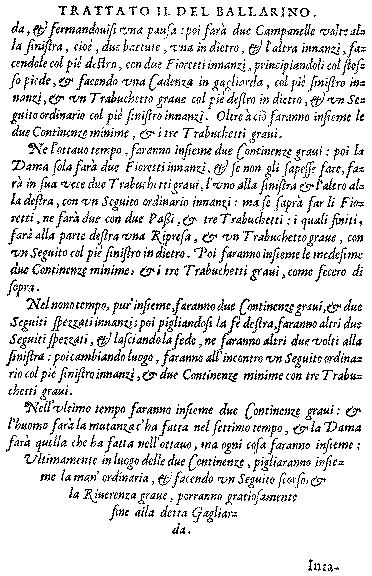 TRATTATO II DEL BALLARINO.
da, & fermandouisi vna pausa: poi farà due Campanelle volte alla
la sinistra, cioè, due battute, vna in dietro, & l'altra innanzi, fa-
cendole col piè destro, con due Fioretti innanzi, principiandoli col stes-
so piede, & facendo vna Cadenza in gagliarda, col piè sinistro in-
nanzi, & vn Trabuchetto graue col piè destro in dietro, & vn Se-
guito ordinario col piè sinistro innanzi. Oltre à ciò faranno insieme le
due Continenze minime, & i tre Trabuchetti graui.
Ne l'ottauo tempo, faranno insieme due Continenze graui: poi la
Dama sola farà due Fioretti innanzi, & se non gli sapesse fare, fa-
rà in sua vece due Trabuchetti graui, l'vno alla sinistra & l'altro al-
la destra, con vn Seguito ordinario innanzi: ma se saprà far li Fio-
retti, ne farà due con due Passi, & tre Trabuchetti: i quali finiti,
farà alla parte destra vna Ripresa, & vn Trabuchetto graue, con
vn Seguito col piè sinistro in dietro. Poi faranno insieme le medesime
due Continenze minime, & i tre Trabuchetti graui, come fecero di
sopra.
Nel nono tempo, pur'insieme, faranno due Continenze graui, & due
Seguiti spezzati innanzi; poi pigliandosi la fè destra, faranno altri due
Seguiti spezzati, & lasciando la fede, ne faranno altri due volti alla
sinistra: poi cambiando luogo, faranno all'incontro vn Seguito ordina-
rio col piè sinistro innanzi, & due Continenze minime con tre Trabu-
chetti graui.
Nell'vltimo tempo faranno insieme due Continenze graui: &
l'huomo farà la mutanza c'ha fatta nel settimo tempo, & la Dama
farà quella che ha fatta nell'ottauo, ma ogni cosa faranno insieme:
Vltimamente in luogo delle due Continenze, pigliaranno insie-
me la man' ordinaria, & facendo vn Seguito scorso, &
la Riuerenza graue, porranno gratiosamente
fine alla detta Gagliar-
da.
Intra-